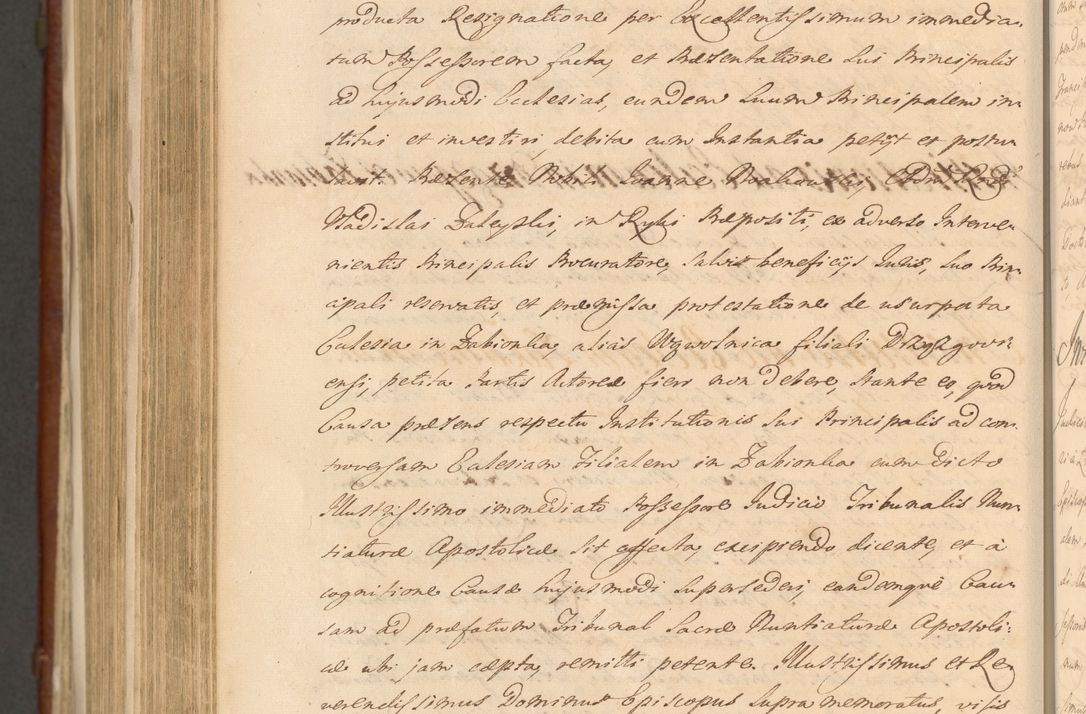 producta Resignatione per Excellentissimum immedia-
tum Possessorem facta, et Præsentatione sui Principalis
ad hujusmodi Ecclesias, eundem suum Principalem in-
stitui et investiri, debita cum Instantia petijt et postu-
lavit. Præsente Nobili Joanne
Wladislai Zaleyski, in Ryki Præpositi, ex adverso Interve-
nientis Principalis Procuratore, salvis beneficijs Juris, suo Prin-
cipali reservatis, et præmissa protestatione de usurpata
Ecclesia in Zabionka, alias Wgwolnica filiali Drzazgovi-
ensi, petita Partis Actoreæ fieri non debere, stante eo, quod
Causa præsens respectu Institutionis sui Principalis ad con-
troversam Eclesiam Filialem in Zabionka cum dicto
Illustrissimo immediato Possessore Judicio Tribunalis Nun-
tiaturæ Apostolicæ sit affecta, excipiendo dicente, et à
cognitione Causæ hujusmodi supersederi, eandemque Cau-
sam ad præfatum Tribunal Sacræ Nuntiaturæ Apostoli-
cæ ubi jam cæpta, remitti petente. Illustrissimus et Re-
verendissimus Dominus Episcopus supra memoratus, visis